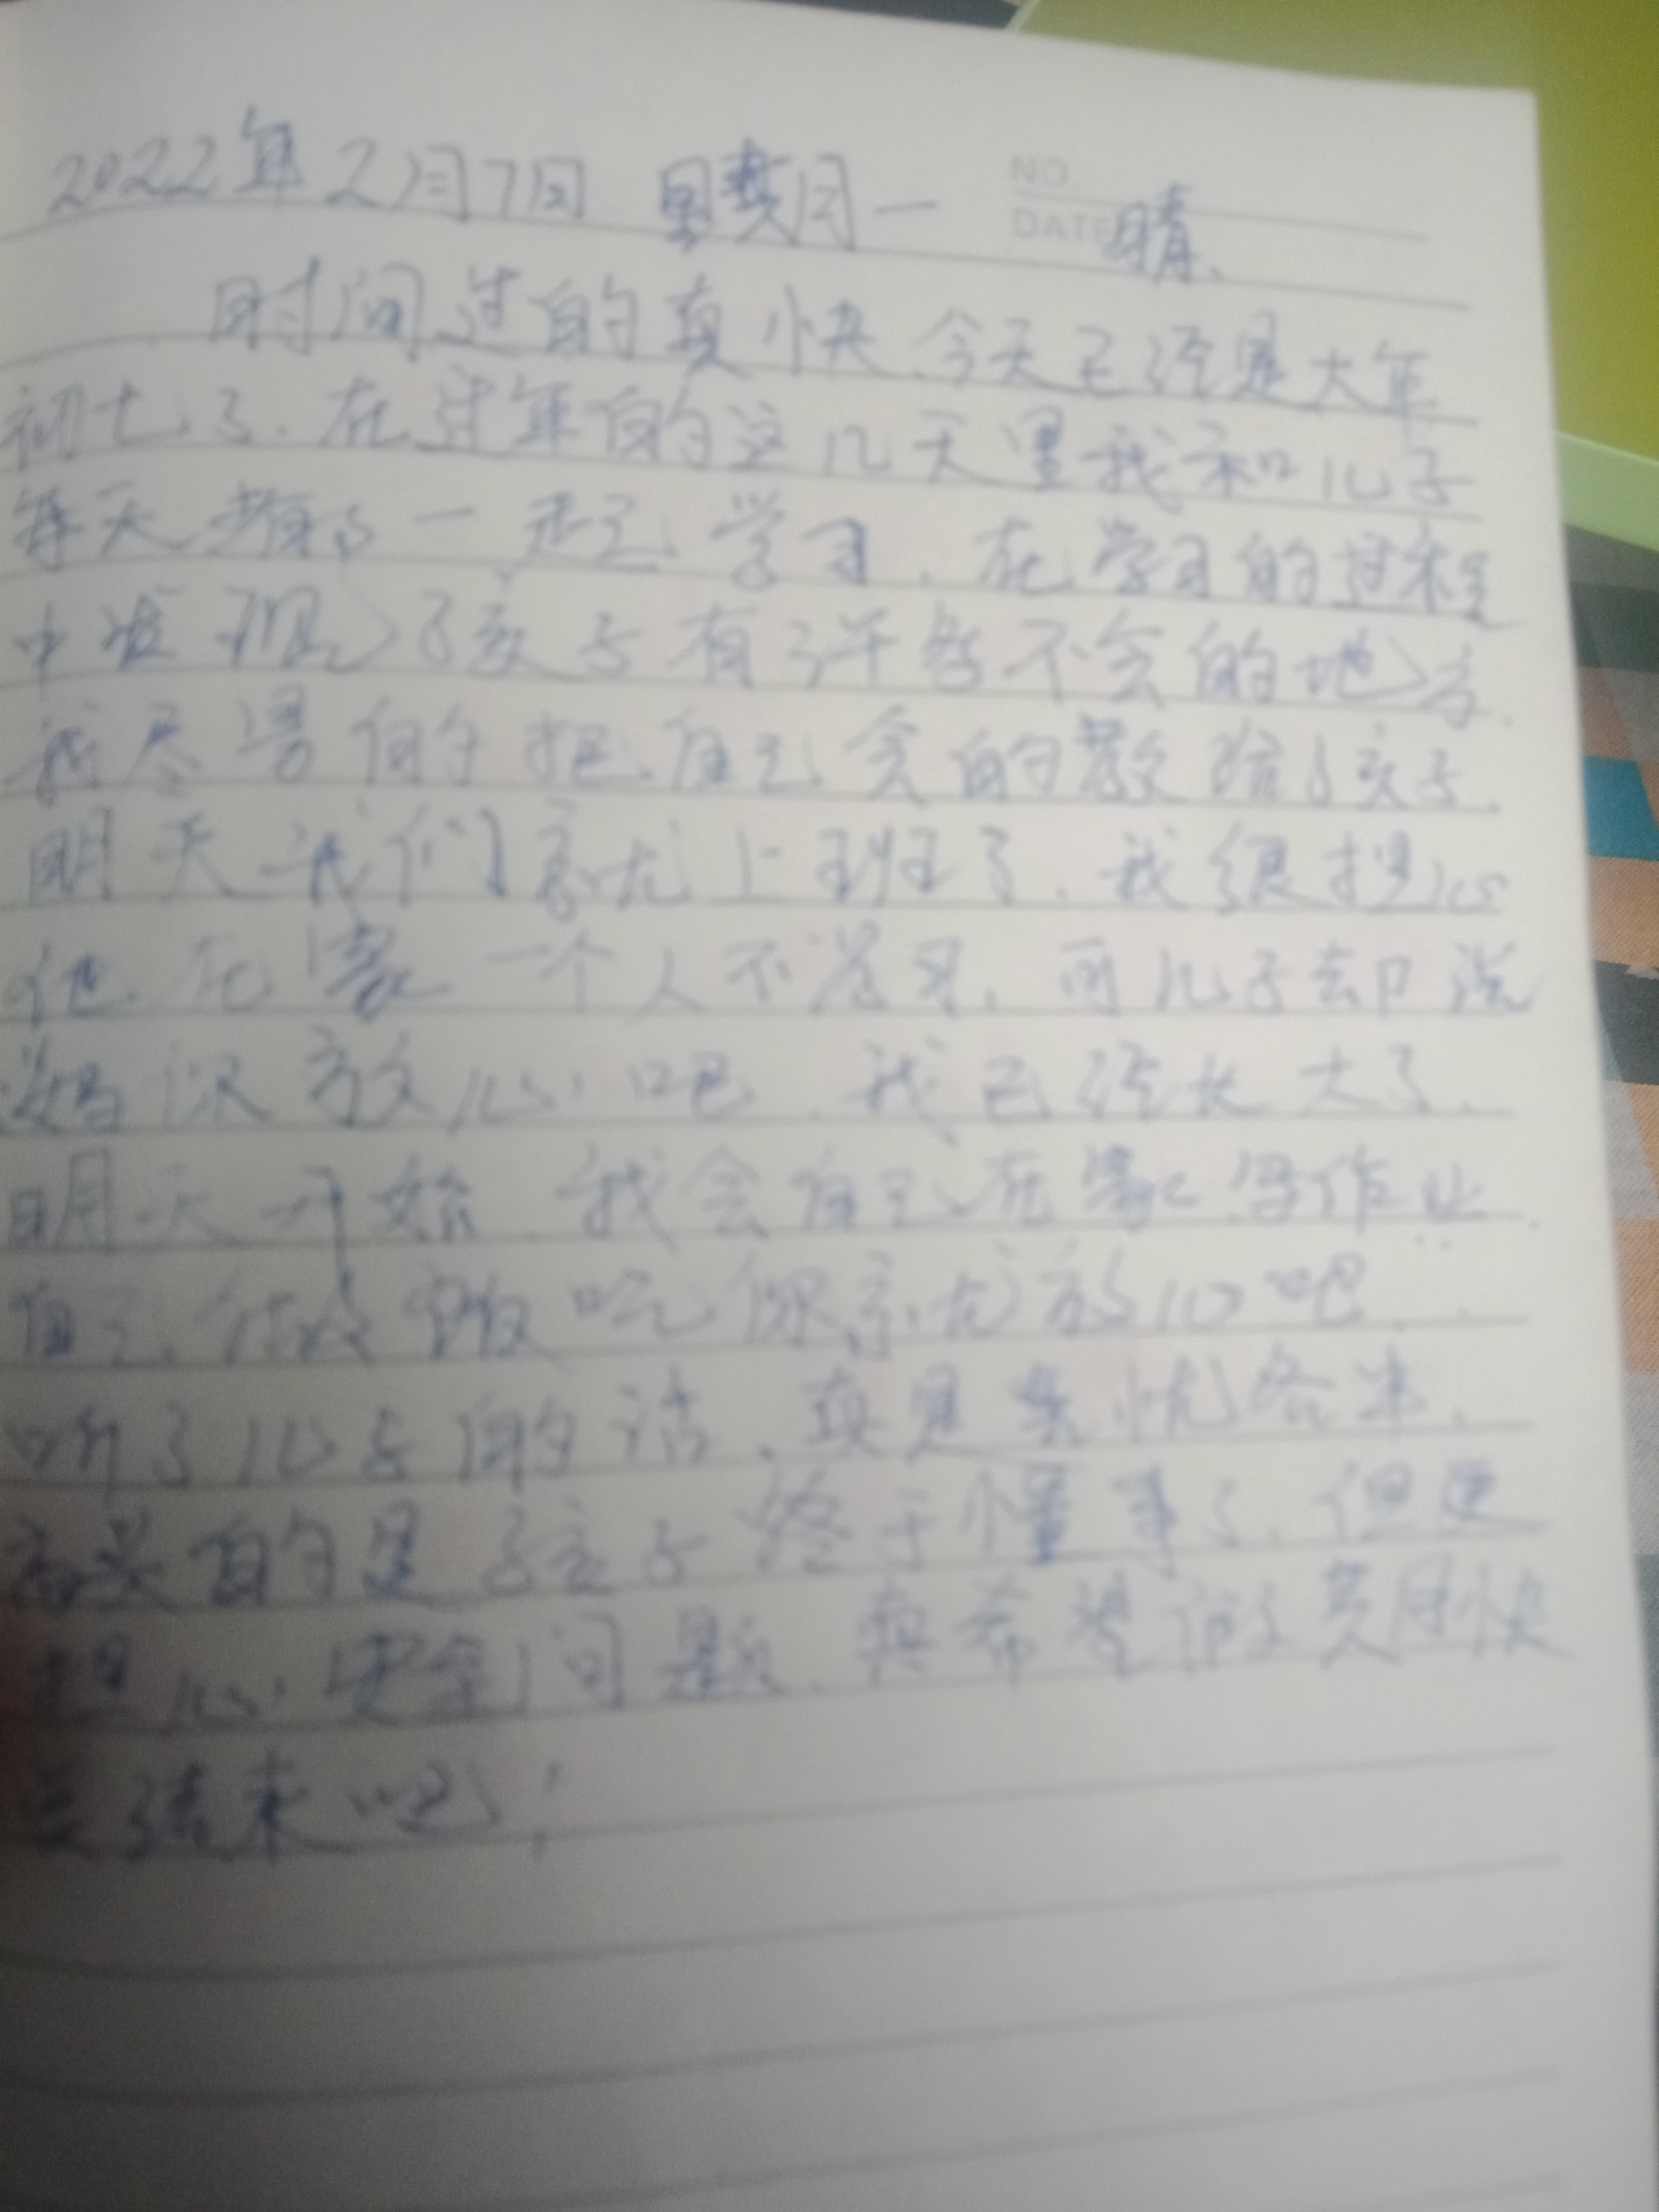 NO
DATE
2022年2月7日 星期一 晴.
时间过的真快.今天已经是大年
初七了.在过年的这几天里我和儿子
每天都一起学习.在学习的过程
中发现孩子有许多不会的地方.
我尽量的把自己会的教给孩子.
明天我们就上班了.我很担心
他在家一个人不学习.可儿子却说
妈你放心吧.我已经长大了.
明天开始.我会自己在家写作业.
自己做饭吃你就放心吧.
听了儿子的话.真是喜忧各半.
高兴的是孩子终于懂事了.但更
担心安全问题.真希望假期快
点结束吧!